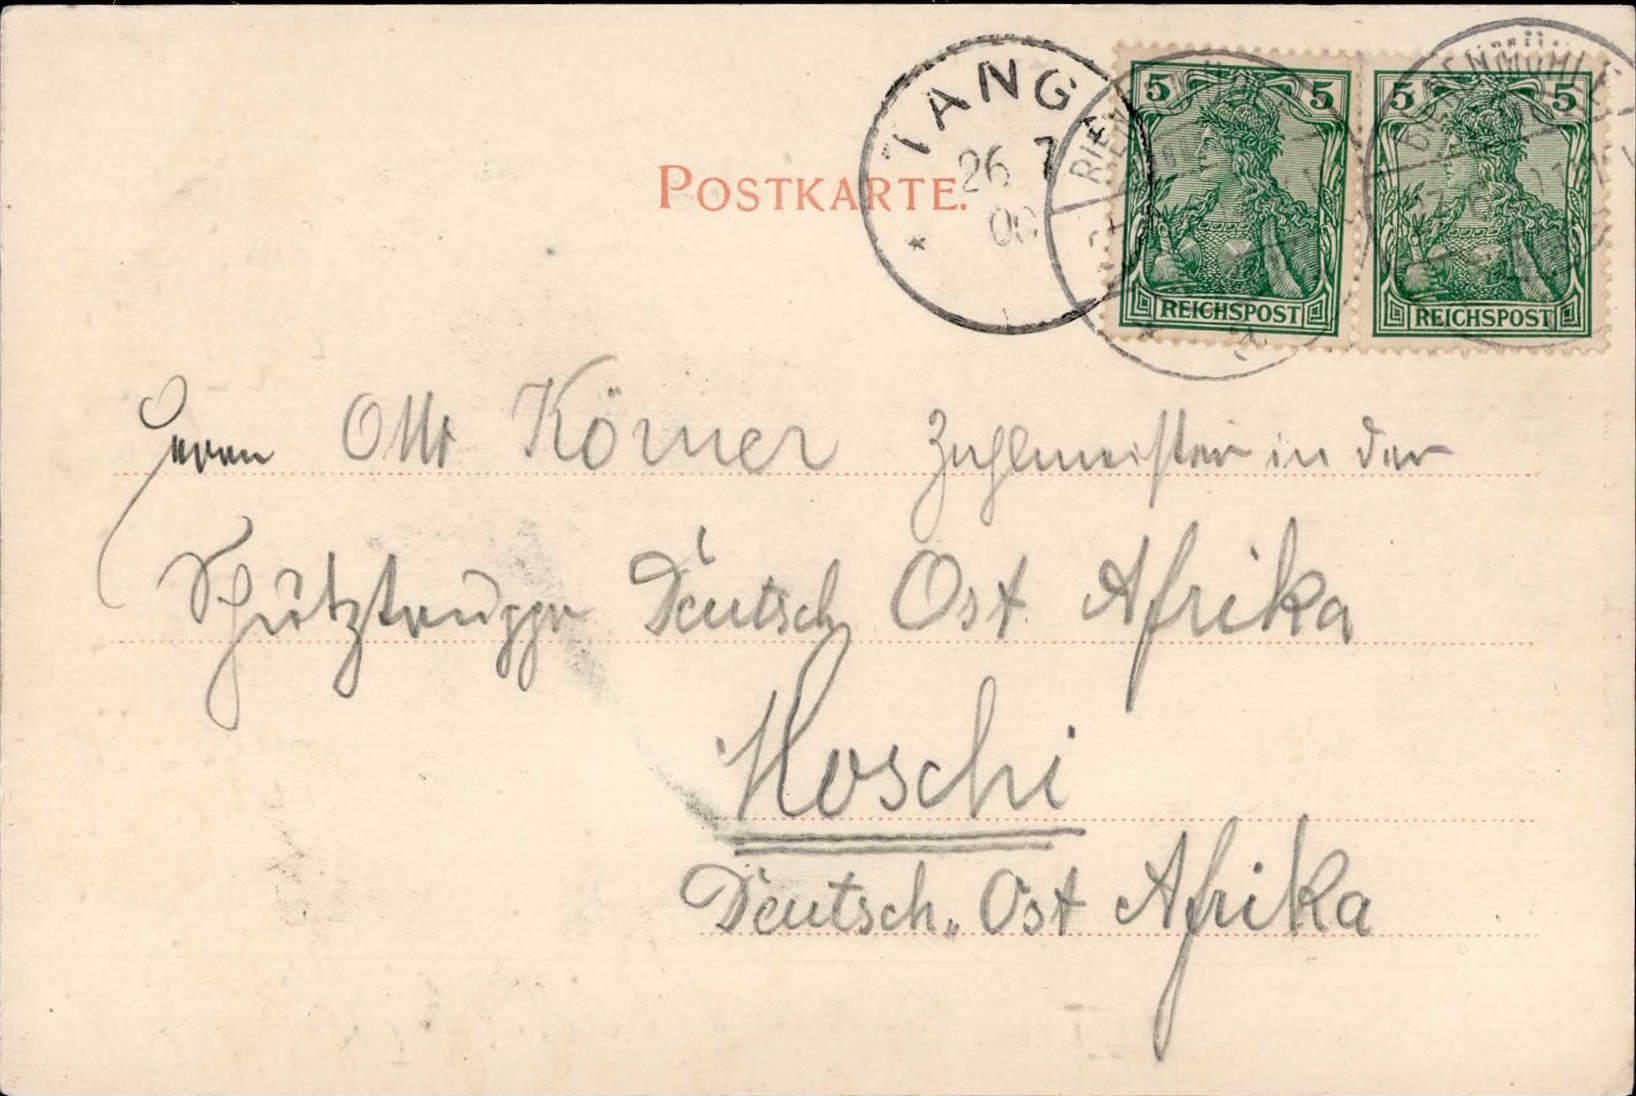 POSTKARTE.
TANGA
26 7
00
5 5
REICHSPOST
5 5
REICHSPOST
BIENENMÜHLE
Herrn Otto Körner Zahlmeister in der
Schutztruppe Deutsch Ost Afrika
Moschi
Deutsch. Ost Afrika